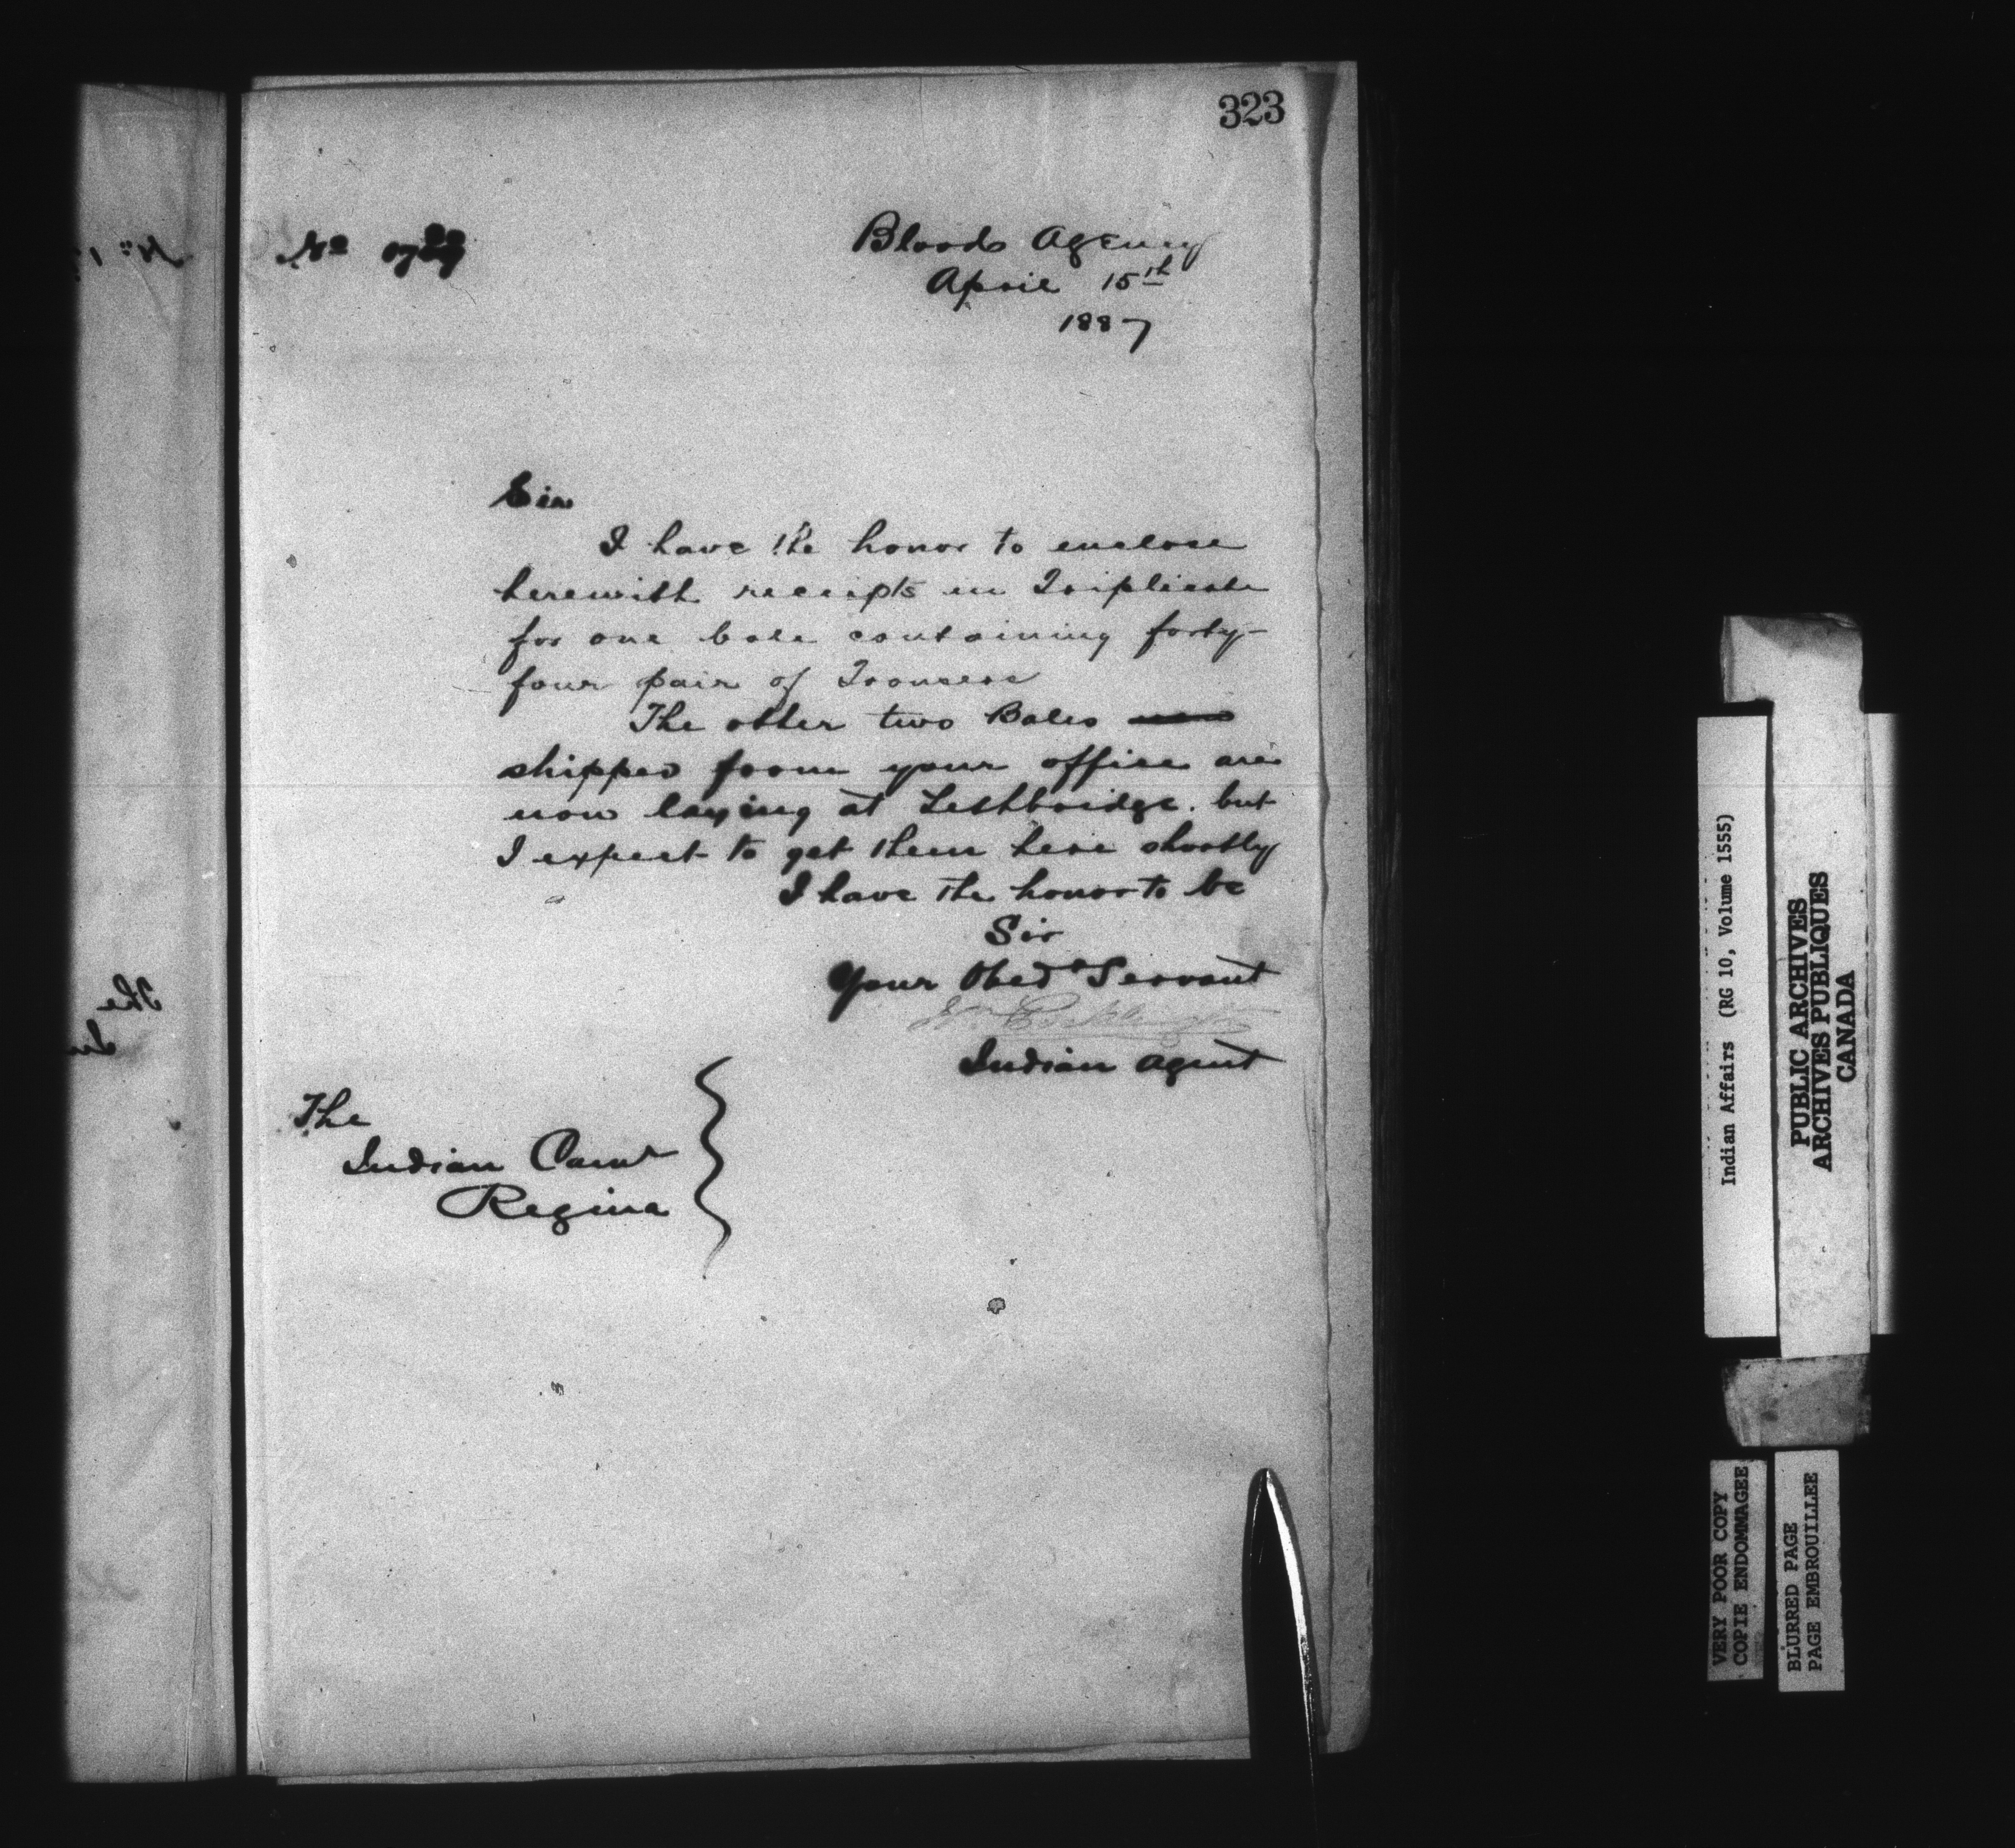 323
No
Bloods Agency
April 15th
1887
Sir
I have the honor to enclose
herewith receipts in Triplicate
for one bale containing forty-
four pair of Trousers
The other two Bales
shipped from your office are
now laying at Lethbridge. but
I expect to get them here shortly
I have the honor to be
Sir
Your Obedt Servant
Wm Pocklington
Indian Agent
The
Indian Comr
Regina
Indian Affairs (RG 10, Volume 1555)
PUBLIC ARCHIVES
ARCHIVES PUBLIQUES
CANADA
VERY POOR COPY
COPIE ENDOMMAGEE
BLURRED PAGE
PAGE EMBROUILLEE